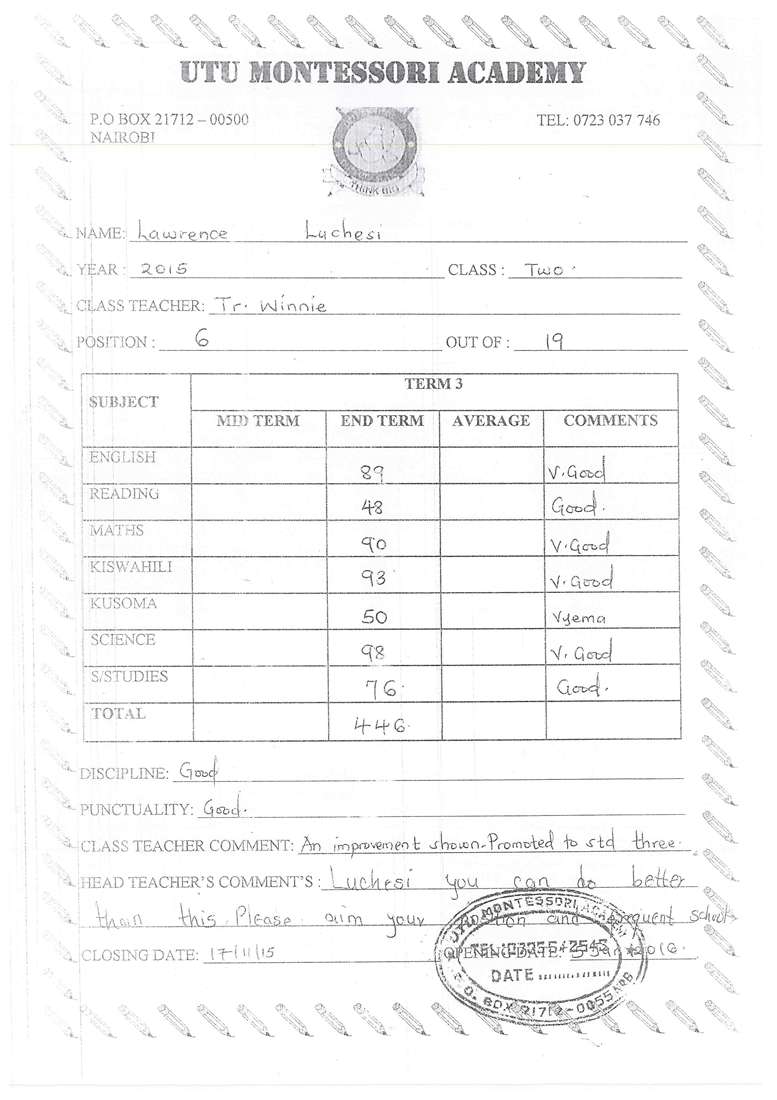 UTU MONTESSORI ACADEMY
P.O BOX 21712 – 00500 TEL: 0723 037 746
NAIROBI
THINK BIG
NAME: Lawrence Luchesi
YEAR : 2015 CLASS : Two.
CLASS TEACHER: Tr. Winnie
POSITION : 6 OUT OF : 19
SUBJECT TERM 3
MID TERM END TERM AVERAGE COMMENTS
ENGLISH 89 V.Good
READING 48 Good.
MATHS 90 V.Good
KISWAHILI 93 V.Good
KUSOMA 50 Vyema
SCIENCE 98 V. Good
S/STUDIES 76. Good.
TOTAL 446.
DISCIPLINE: Good
PUNCTUALITY: Good.
CLASS TEACHER COMMENT: An improvement shown-Promoted to std three.
HEAD TEACHER'S COMMENT'S : Luchesi you can do better
than this. Please aim your position and school
CLOSING DATE: 17/11/15 OPENING DATE: 5 Jan 2016.
UTU MONTESSORI ACADEMY
DATE
P.O. BOX 21712-0055 NRB